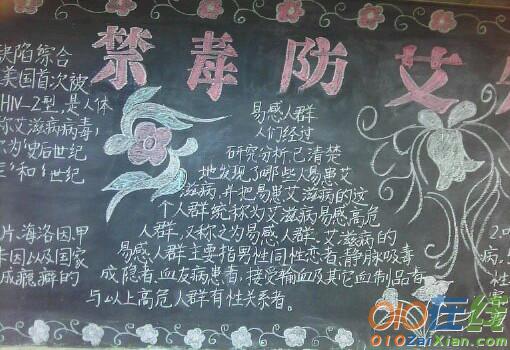 禁毒防艾
缺陷综合
美国首次被
HIV-2型,是人体
称艾滋病病毒,
为"史后世纪
和"1世纪
易感人群
人们经过
研究分析,已清楚
地发现了哪些人易患艾
滋病,并把易患艾滋病的这
个人群统称为艾滋病易感高危
人群,又称之为易感人群。艾滋病的
易感人群主要指男性同性恋者、静脉吸毒
成隐者、血友病患者,接受输血及其它血制品者、
与以上高危人群有性关系者。
片、海洛因、甲
因以及国家
成瘾癖的
2.
病,
性
010在线
010ZaiXian.com